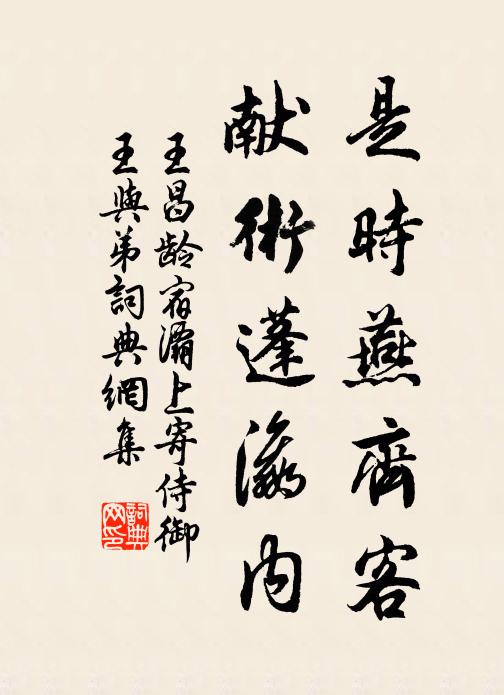 是時燕齊客
献術蓬瀛内
王昌龄宿灞上寄侍御
王與弟詞典網集
詞典
网印